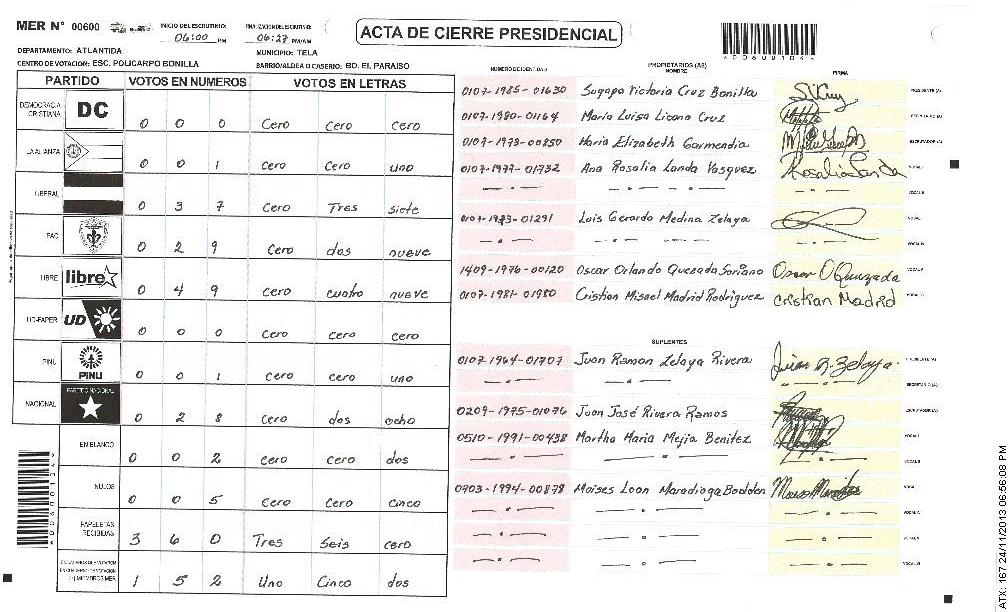 MER N° 00600 INICIO DEL ESCRUTINIO: 06:00 PM FINALIZACION DEL ESCRUTINIO: 06:27 PM/AM
ACTA DE CIERRE PRESIDENCIAL
DEPARTAMENTO: ATLANTIDA MUNICIPIO: TELA
CENTRO DE VOTACION: ESC. POLICARPO BONILLA BARRIO/ALDEA O CASERIO: BO. EL PARAISO
PARTIDO VOTOS EN NUMEROS VOTOS EN LETRAS
DEMOCRACIA CRISTIANA DC 0 0 0 Cero Cero Cero
LA ALIANZA 0 0 1 Cero Cero uno
LIBERAL 0 3 7 Cero Tres siete
PAC 0 2 9 Cero dos nueve
LIBRE libre 0 4 9 Cero cuatro nueve
UD-FAPER UD 0 0 0 Cero Cero Cero
PINU PINU 0 0 1 Cero Cero uno
NACIONAL PARTIDO NACIONAL 0 2 8 Cero dos ocho
EN BLANCO 0 0 2 Cero Cero dos
NULOS 0 0 5 Cero Cero Cinco
PAPELETAS RECIBIDAS 3 6 0 Tres Seis cero
(+) MIEMBROS MER 1 5 2 Uno Cinco dos
NUMERO DE IDENTIDAD PROPIETARIOS (AS) NOMBRE FIRMA
0107-1985-01630 Sugapa Victoria Cruz Bonilla PRESIDENTE (A)
0107-1980-01164 Maria Luisa Licona Cruz SECRETARIO (A)
0107-1973-00850 Maria Elizabeth Garmendia ESCRUTADOR (A)
0107-1977-01732 Ana Rosalia Landa Vasquez VOCAL I
VOCAL II
01291 Luis Gerardo Medina Zelaya VOCAL
VOCAL IV
1409-1976-00120 Oscar Orlando Quezada Soriano Oscar O Quezada VOCAL V
0107-1981-01980 Cristian Misael Madrid Rodriguez Cristian Madrid VOCAL VI
SUPLENTES
0107-1964-01707 Juan Ramon Zelaya Rivera Juan R. Zelaya. PRESIDENTE (A)
SECRETARIO (A)
0209-1975-01076 Juan José Rivera Ramos ESCRUTADOR (A)
0510-1991-00438 Martha Maria Mejia Benitez VOCAL I
VOCAL II
0903-1994-00878 Moises Loan Maradiaga Bodden VOCAL
VOCAL IV
VOCAL V
VOCAL VI
ATX: 167 24/11/2013 06:56:08 PM